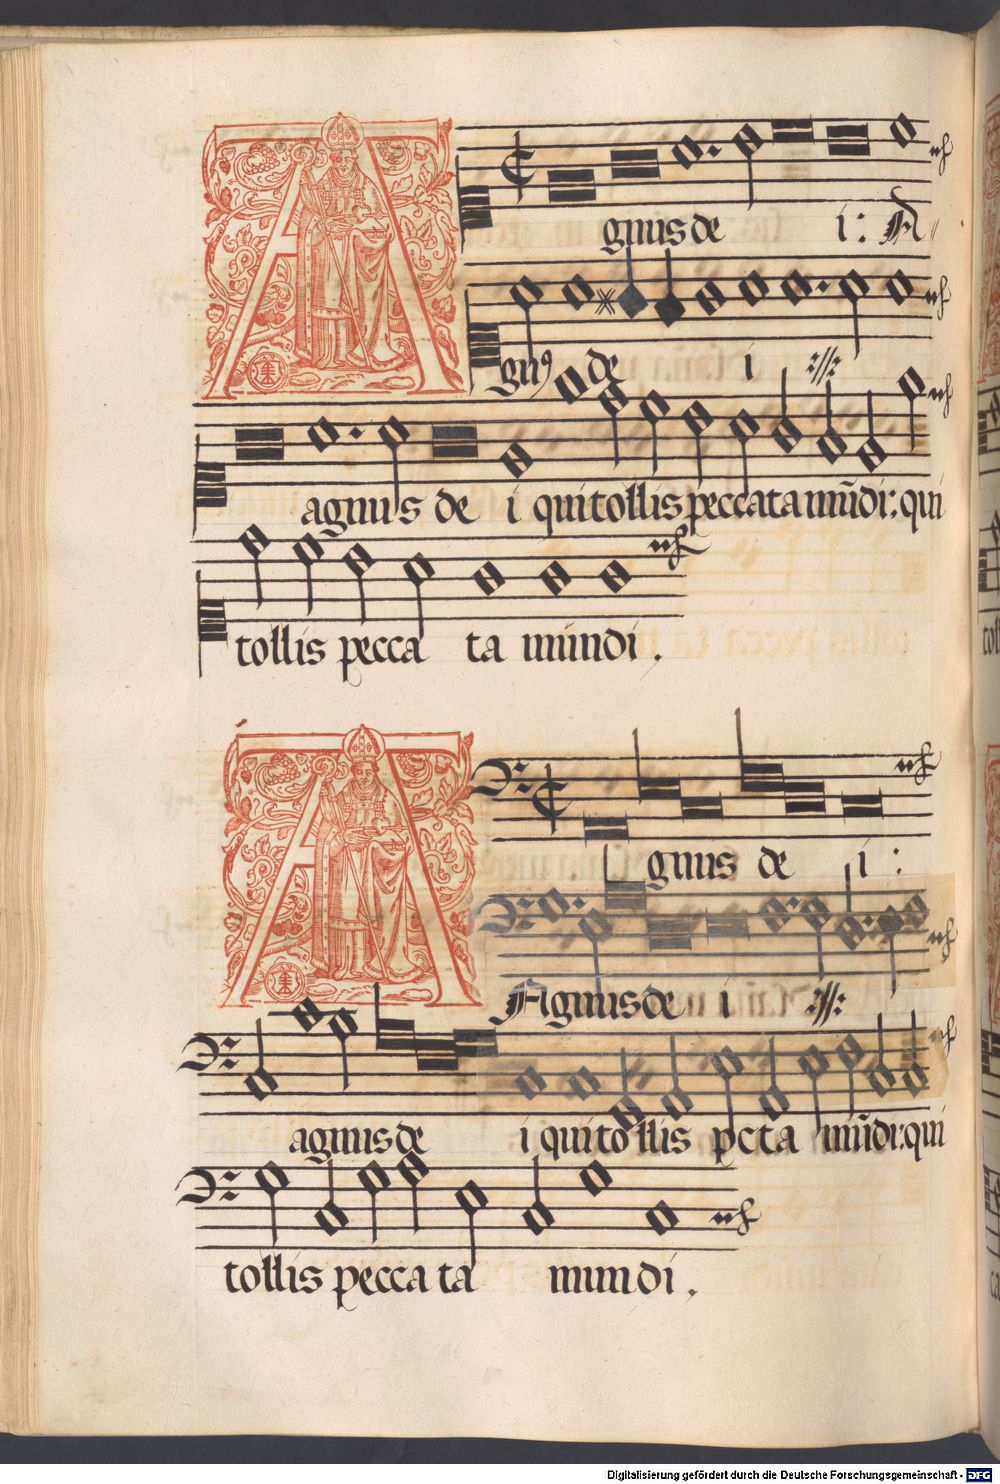 A gnus de i: A
gnꝰ de i :||:
agnus de i qui tollis peccata mũdi: qui
tollis pecca ta mundi.
A gnus de i:
Agnus de i :||:
agnus de i qui to llis pcta mũdi: qui
tollis pecca ta mundi.
Digitalisierung gefördert durch die Deutsche Forschungsgemeinschaft - DFG